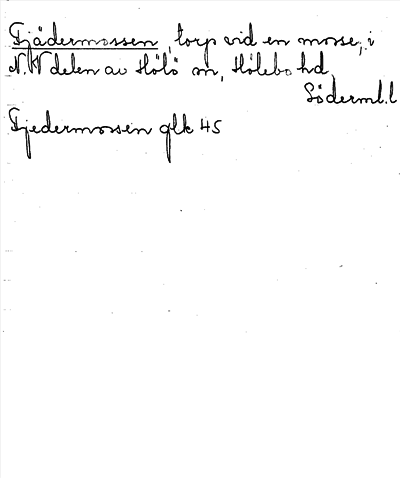 Fjädermossen, torp vid en mosse, i
N.V delen av Hölö sn, Hölebo hd
Söderml.l
Fjedermossen glk 45